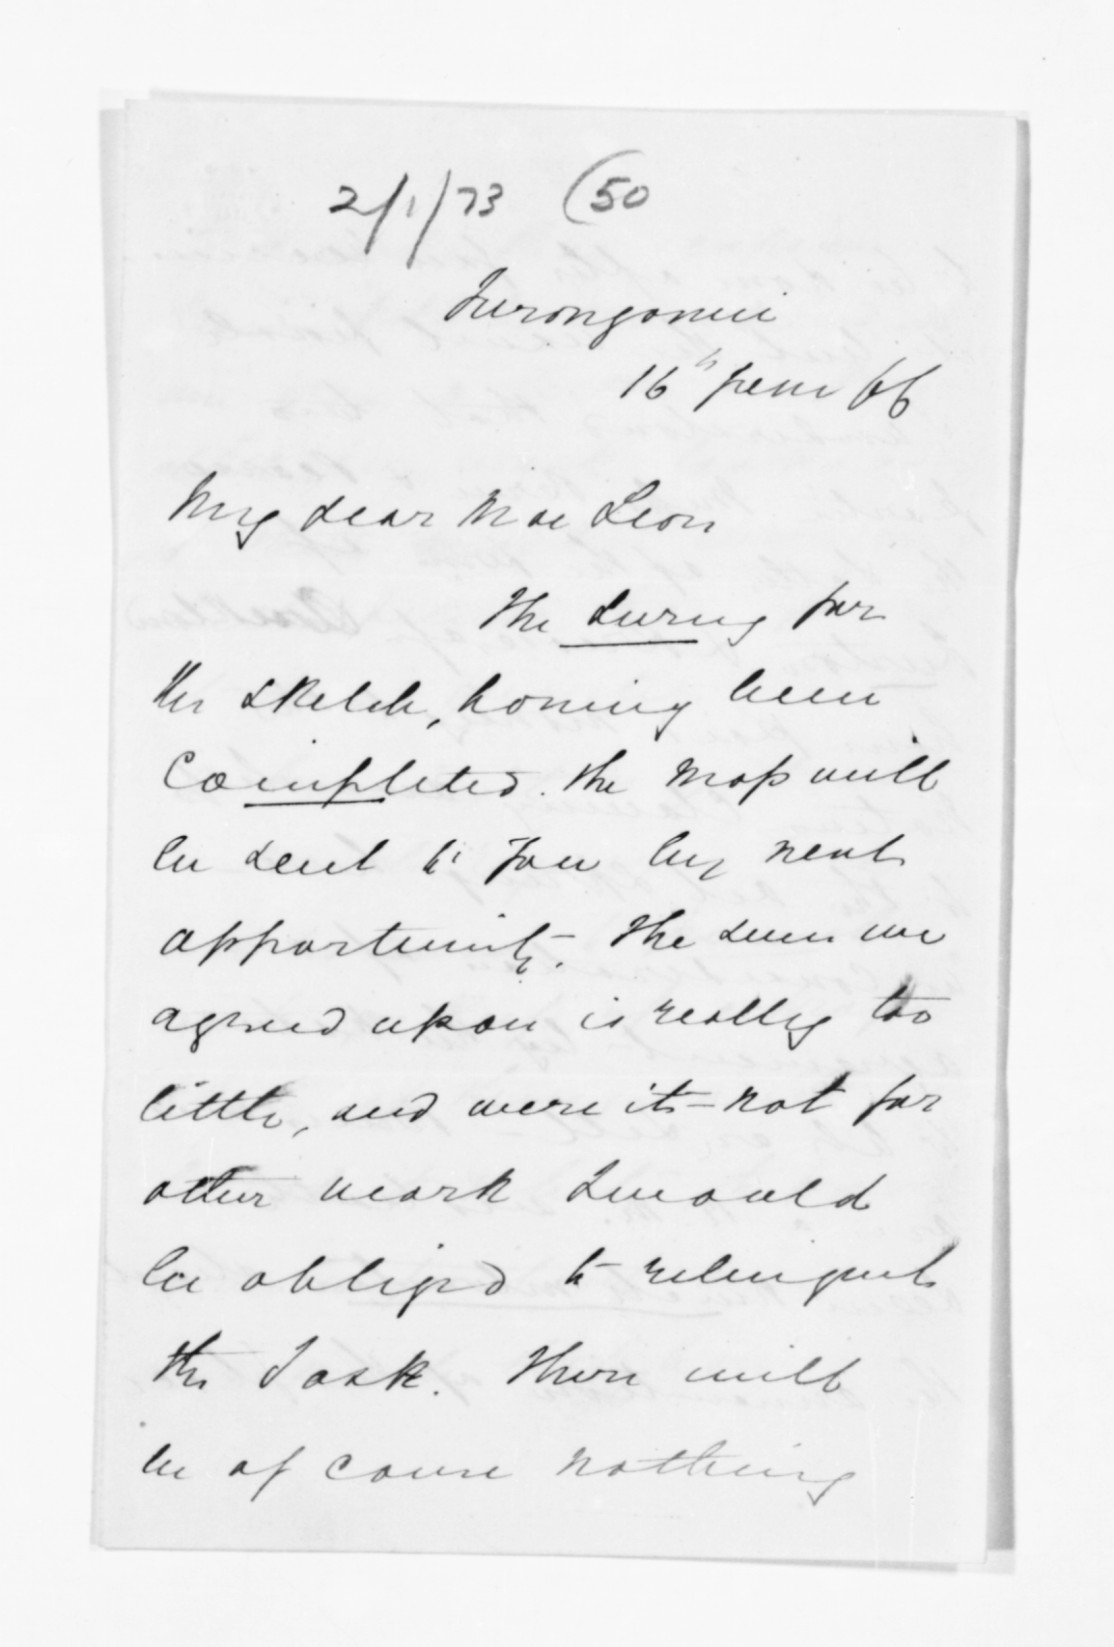 2/1/73 (50
Turongomui
16th June 66
My dear Mac Lean
The Survey for
the sketch, having been
Completed. the map will
be sent to you by next
opportunity. The sum we
agreed upon is really too
little, and were it not for
other work I would
be obliged to relinquish
the Task. There will
be of course nothing